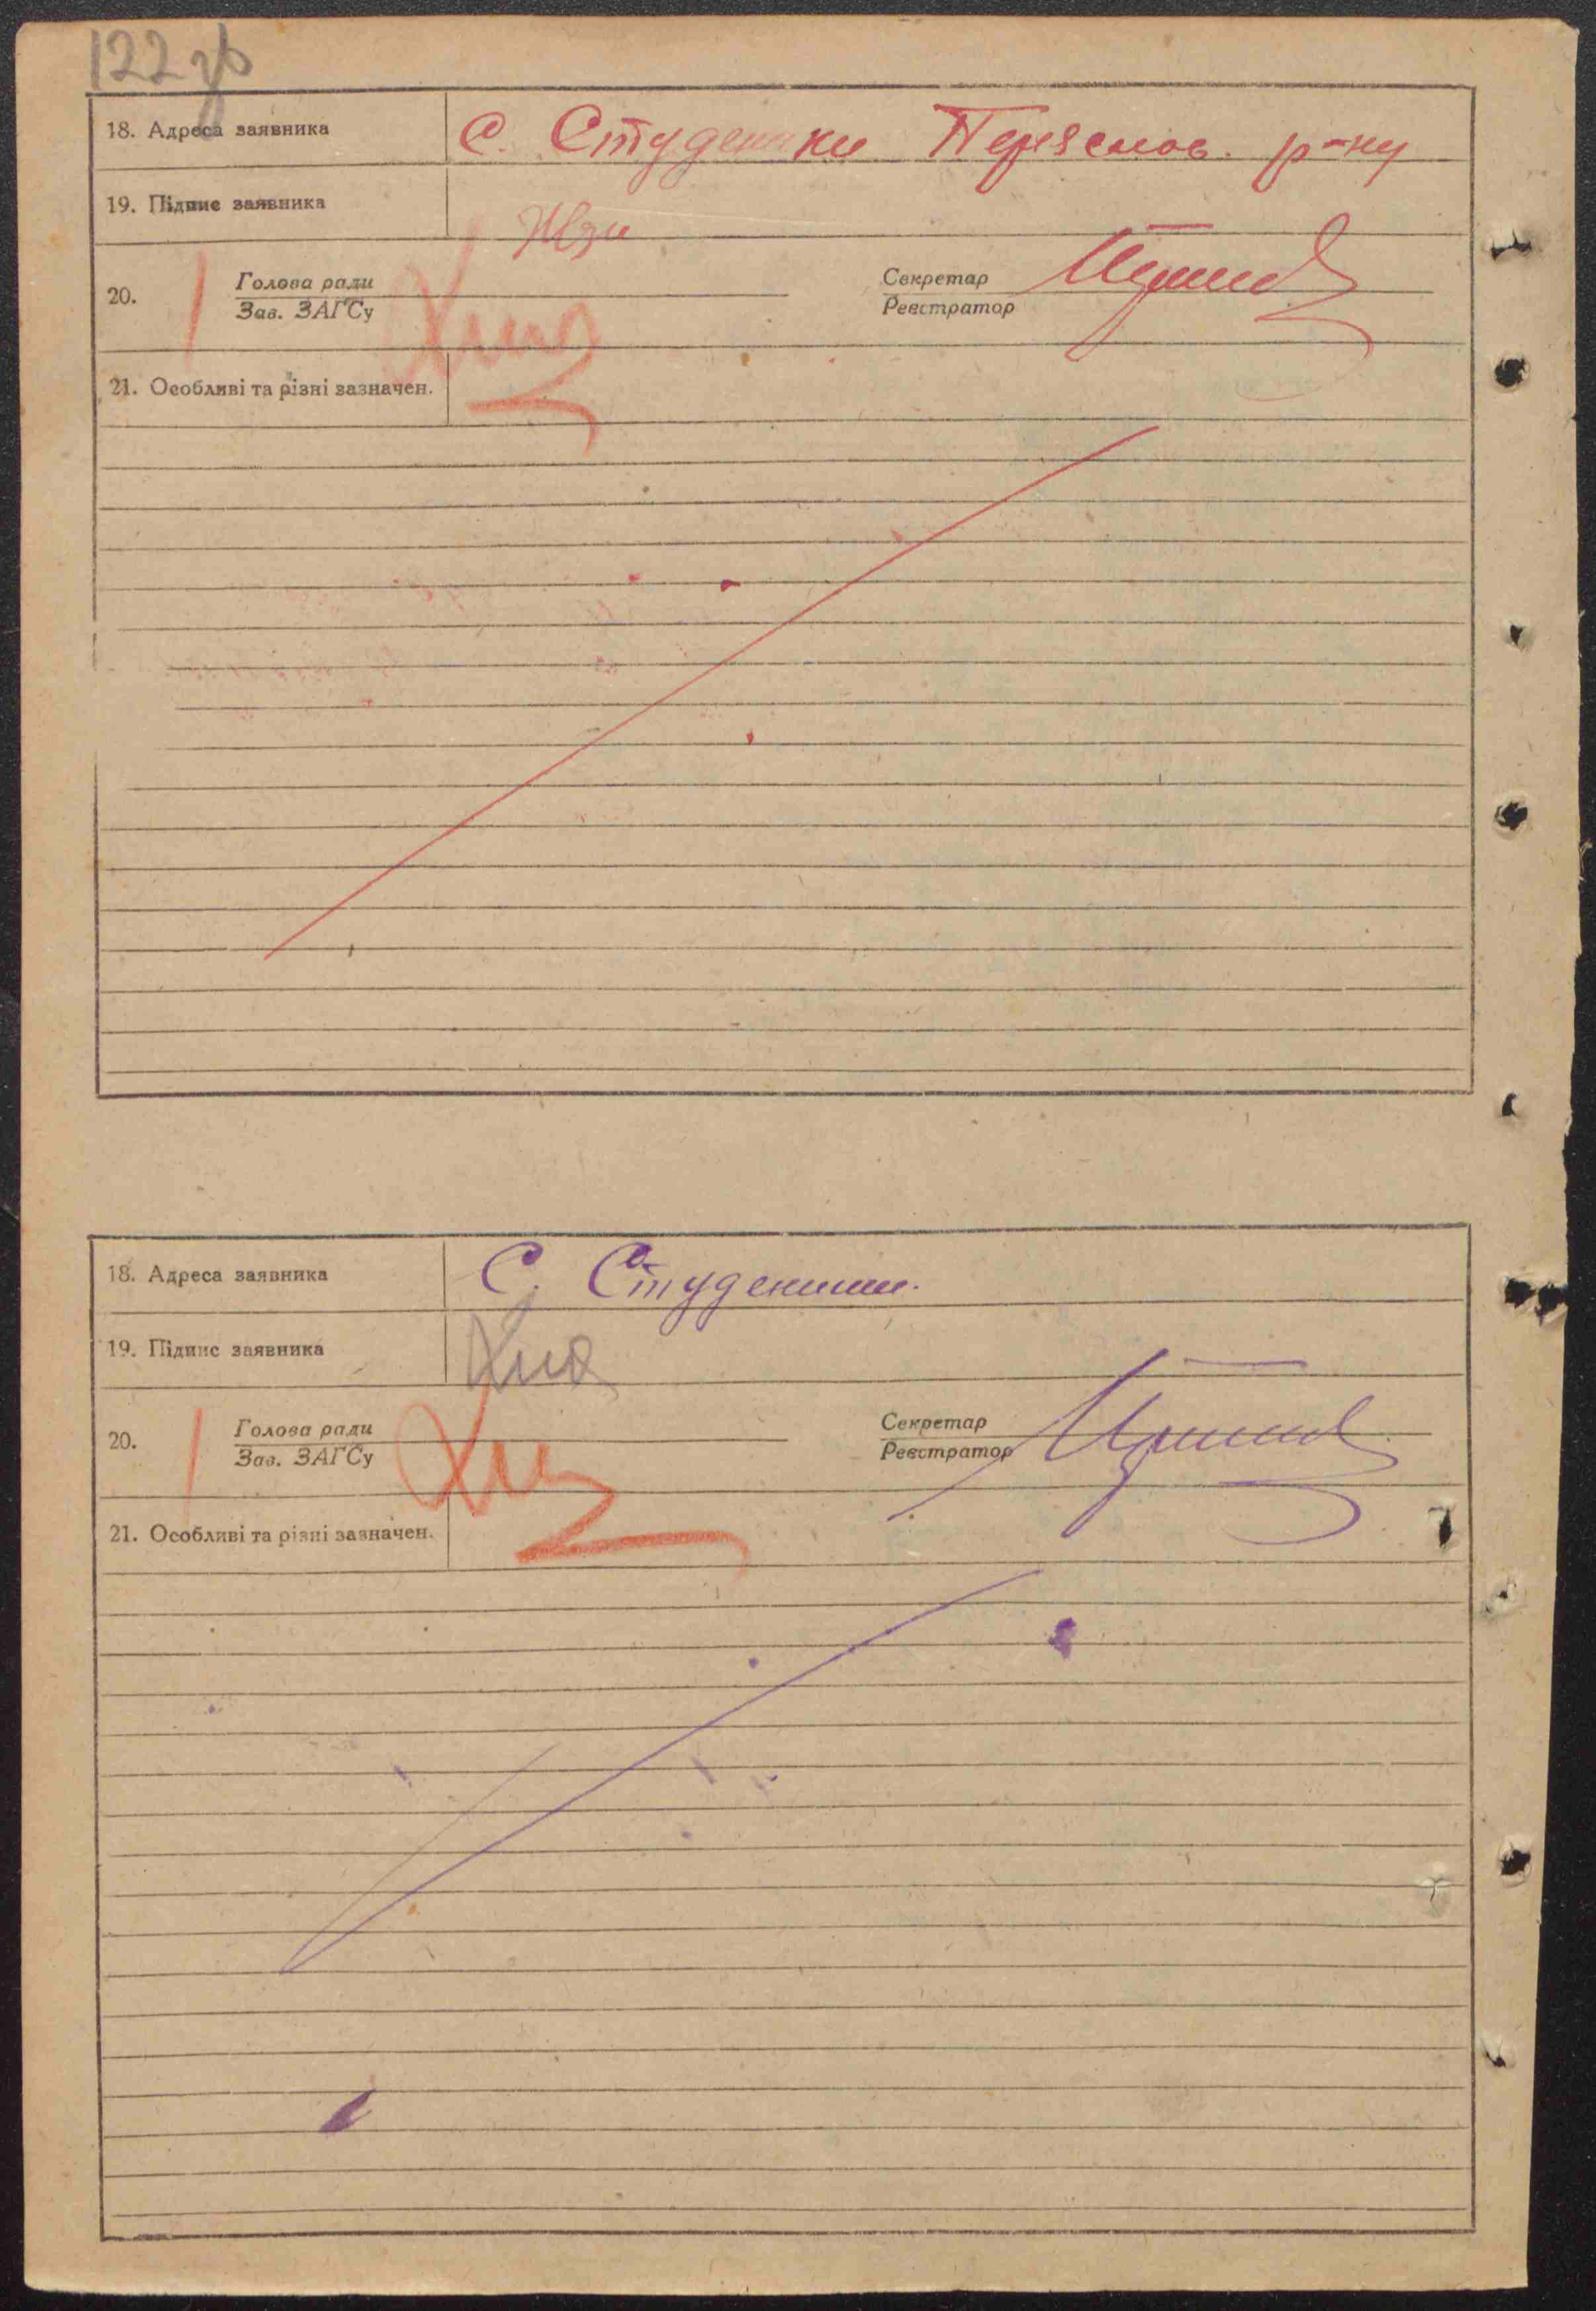 122 зв
18. Адреса заявника С. Студеники Переяслов. р-ну
19. Підпис заявника
20. Голова ради Секретар
Зав. ЗАГСу Реєстратор
21. Особливі та різні зазначен.
18. Адреса заявника С. Студеники.
19. Підпис заявника
20. Голова ради Секретар
Зав. ЗАГСу Реєстратор
21. Особливі та різні зазначен.